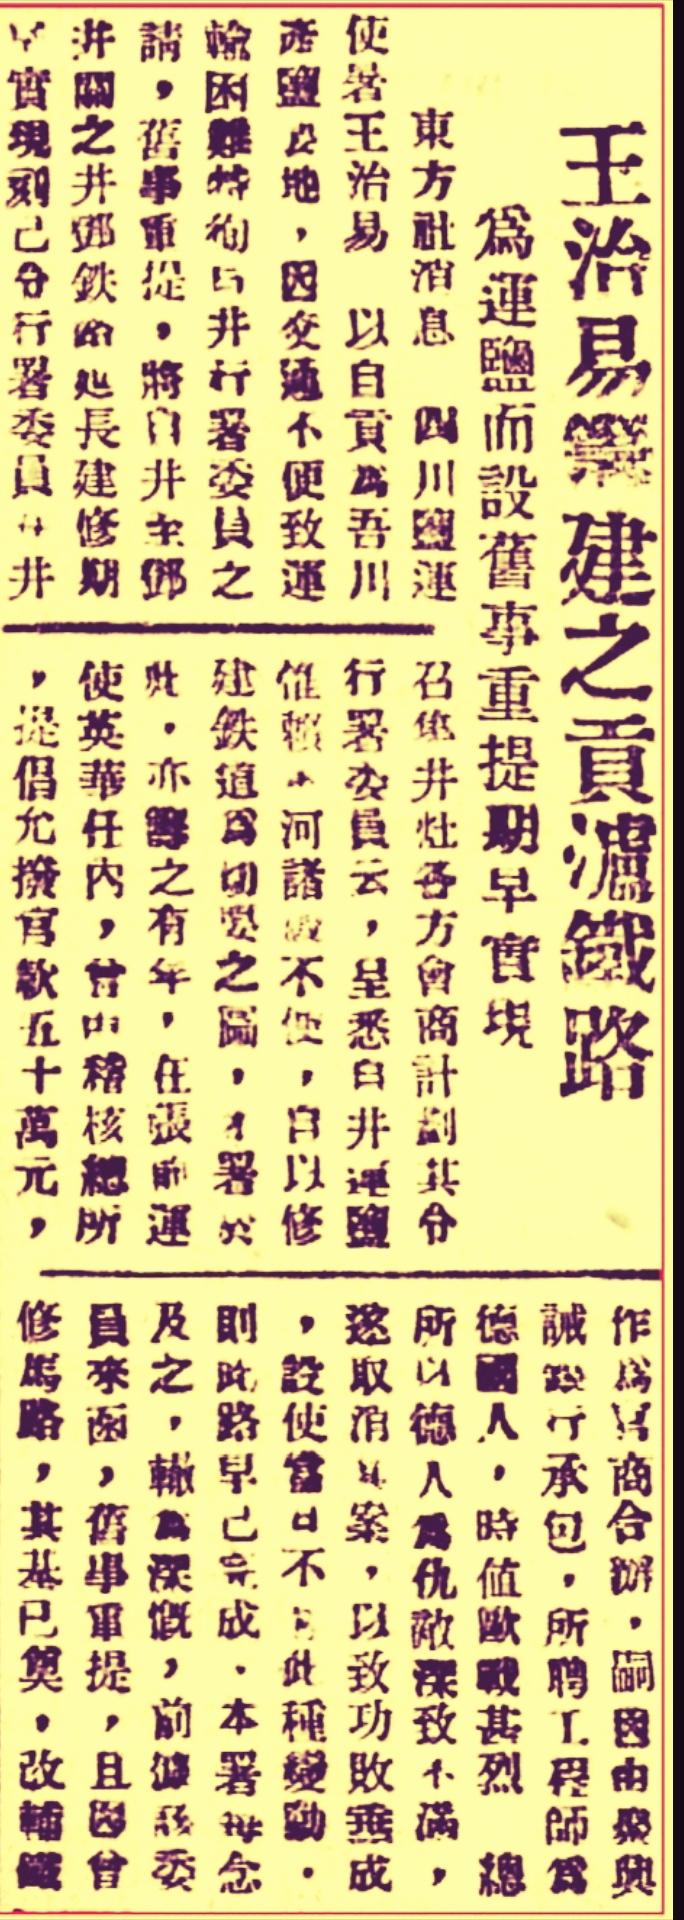 王治易籌建之貢瀘鐵路
爲運鹽而設舊事重提期早實現
東方社消息 四川鹽運
使署王治易 以自貢爲吾川
產鹽之地，因交通不便致運
輸困難特徇自井行署委員之
請，舊事重提，將自井至鄧
井關之井鄧鉄路延長建修期
早實現刻已令行署委員 井
召集井灶各方會商計劃其令
行署委員云，呈悉自井運鹽
惟賴 河諸 不便，自以修
建鉄道爲切要之圖，本署於
此，亦籌之有年，在張前運
使英華任內，曾由稽核總所
，提倡允撥官欵五十萬元，
作爲官商合辦，嗣因由聚興
誠銀行承包，所聘工程師爲
德國人，時值歐戰甚烈 總
所以德人爲仇敵深致不滿，
遂取消此案，以致功敗垂成
，設使當日不 此種變動，
則此路早已完成，本署每念
及之，輒爲深慨，前據該委
員來函，舊事重提，且因曾
修馬路，其基已奠，改輔鐵